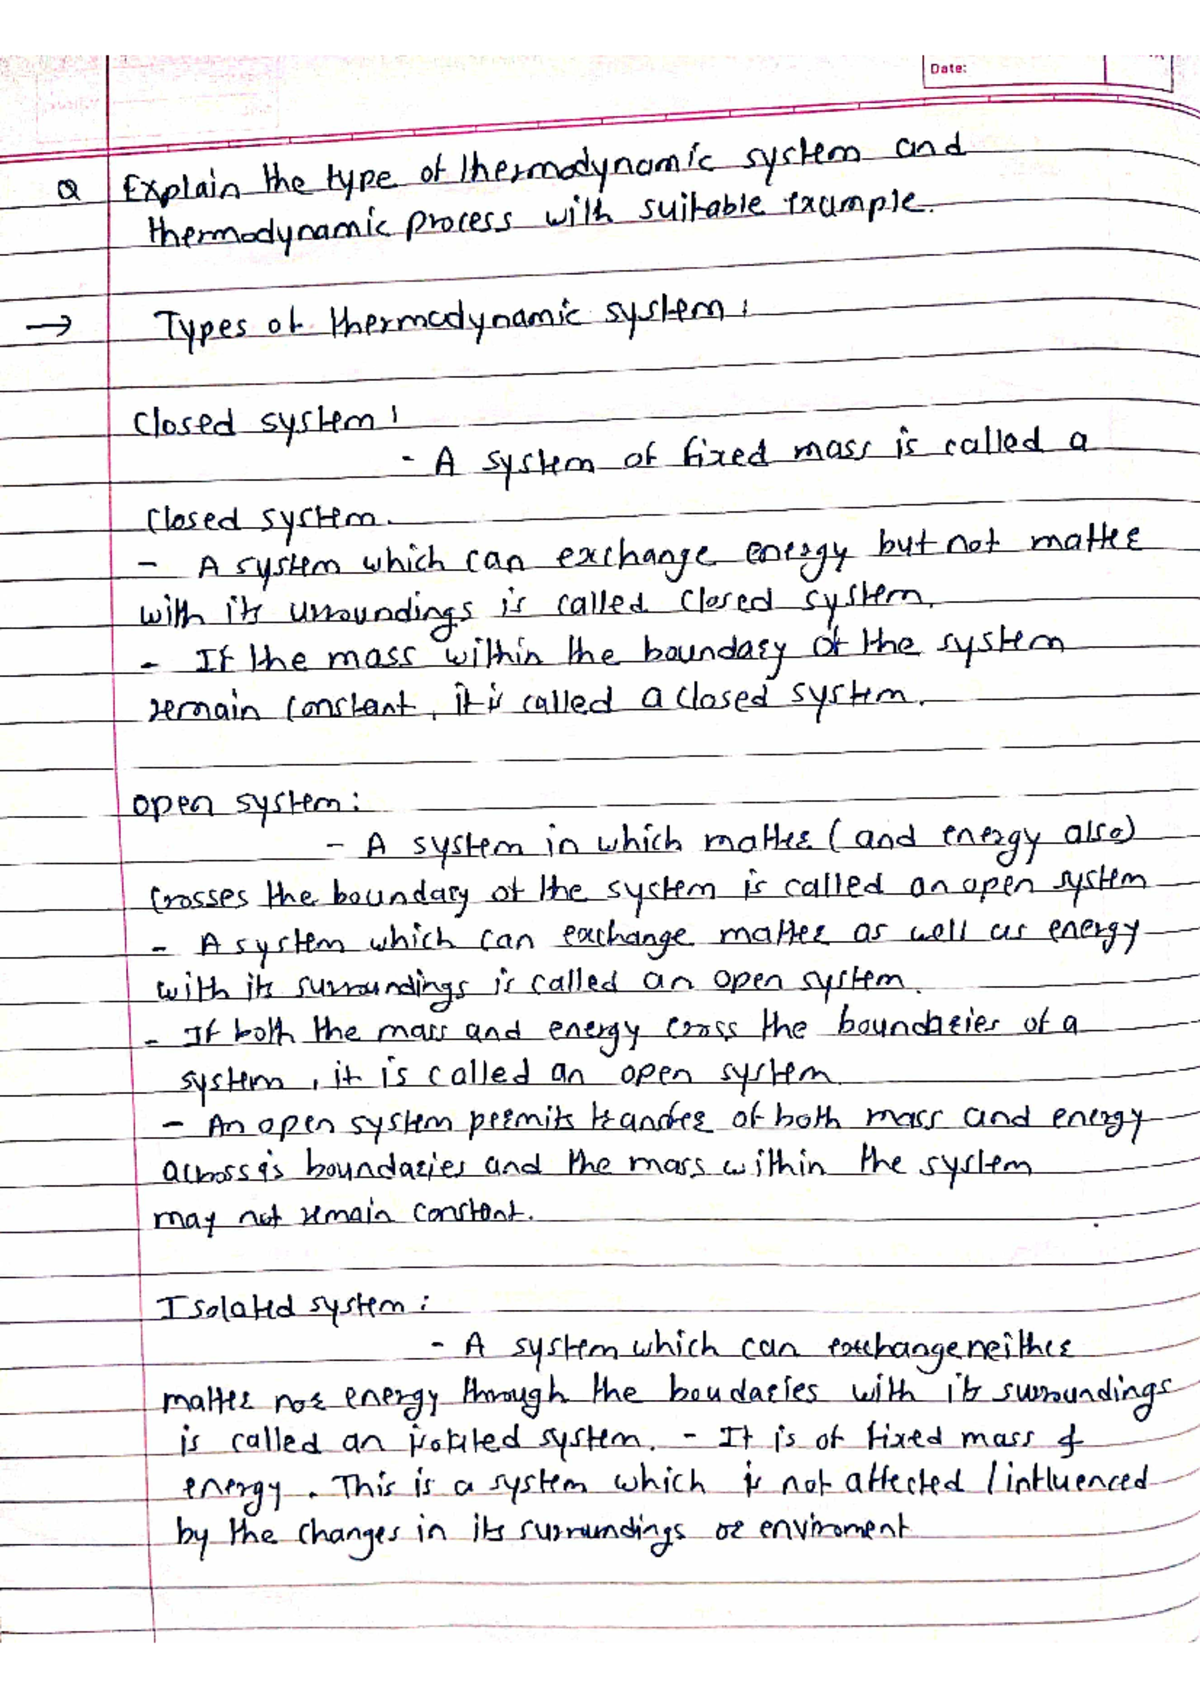 Date:
Q Explain the type of thermodynamic system and
thermodynamic process with suitable example.
→ Types of thermodynamic system:
Closed system:
- A system of fixed mass is called a
Closed system.
- A system which can exchange energy but not matter
with its urroundings is called closed system.
- If the mass within the boundary of the system
remain constant, it is called a closed system.
open system:
- A system in which matter (and energy also)
crosses the boundary of the system is called an open system
- A system which can exchange matter as well as energy
with its surroundings is called an open system.
- If both the mass and energy cross the boundaries of a
system, it is called an open system.
- An open system permits transfer of both mass and energy
across boundaries and the mass within the system
may not remain constant.
Isolated system:
- A system which can exchange neither
matter nor energy through the boudaries with its surroundings
is called an isolated system. - It is of fixed mass &
energy. This is a system which is not affected / influenced
by the changes in its surroundings or enviroment